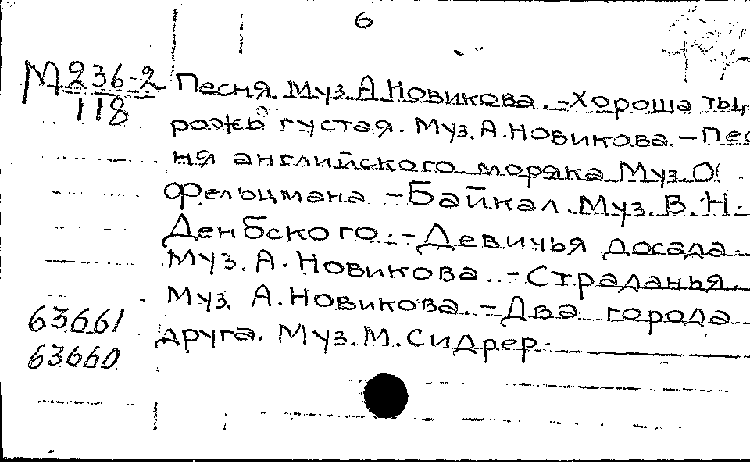 6
М 236-2
118
Песня. Муз. А. Новикова. – Хороша ты,
рожь густая. Муз. А. Новикова. – Пес
ня английского моряка Муз. О.
Фельцмана. – Байкал. Муз. В. Н.
Денбского. – Девичья досада.
Муз. А. Новикова. – Страданья.
Муз. А. Новикова. – Два города
друга. Муз. М. Сидрер.
63661
63660